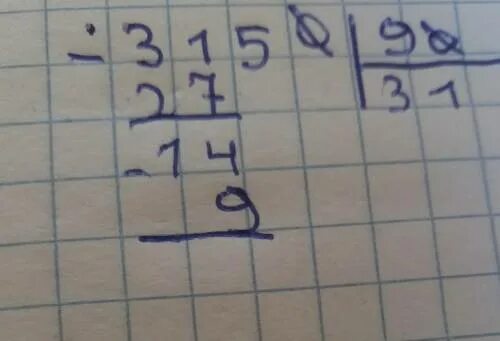 - 3150 | 90
27 | 31
- 14
9